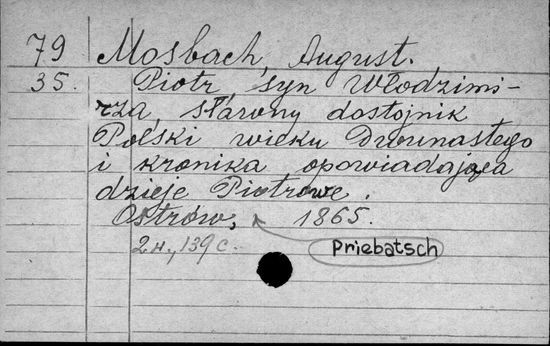 79 Mosbach, August.
35. Piotr, syn Włodzimi-
rza, sławny dostojnik
Polski wieku Dwunastego
i kronika opowiadająca
dzieje Piotrowe.
Ostrów, 1865.
Priebatsch
2 н., 139 с.